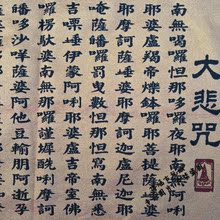 大悲咒
南無喝囉怛那哆囉夜耶南無
耶婆盧羯帝爍鉢囉耶菩提薩
耶摩訶薩埵婆耶摩訶迦盧尼迦耶
唵薩皤囉罰曳數怛那怛寫南無悉
吉慄埵伊蒙阿唎耶婆盧吉帝室佛
囉楞馱婆南無那囉謹墀醯唎摩訶
皤哆沙咩薩婆阿他豆輸朋阿逝孕